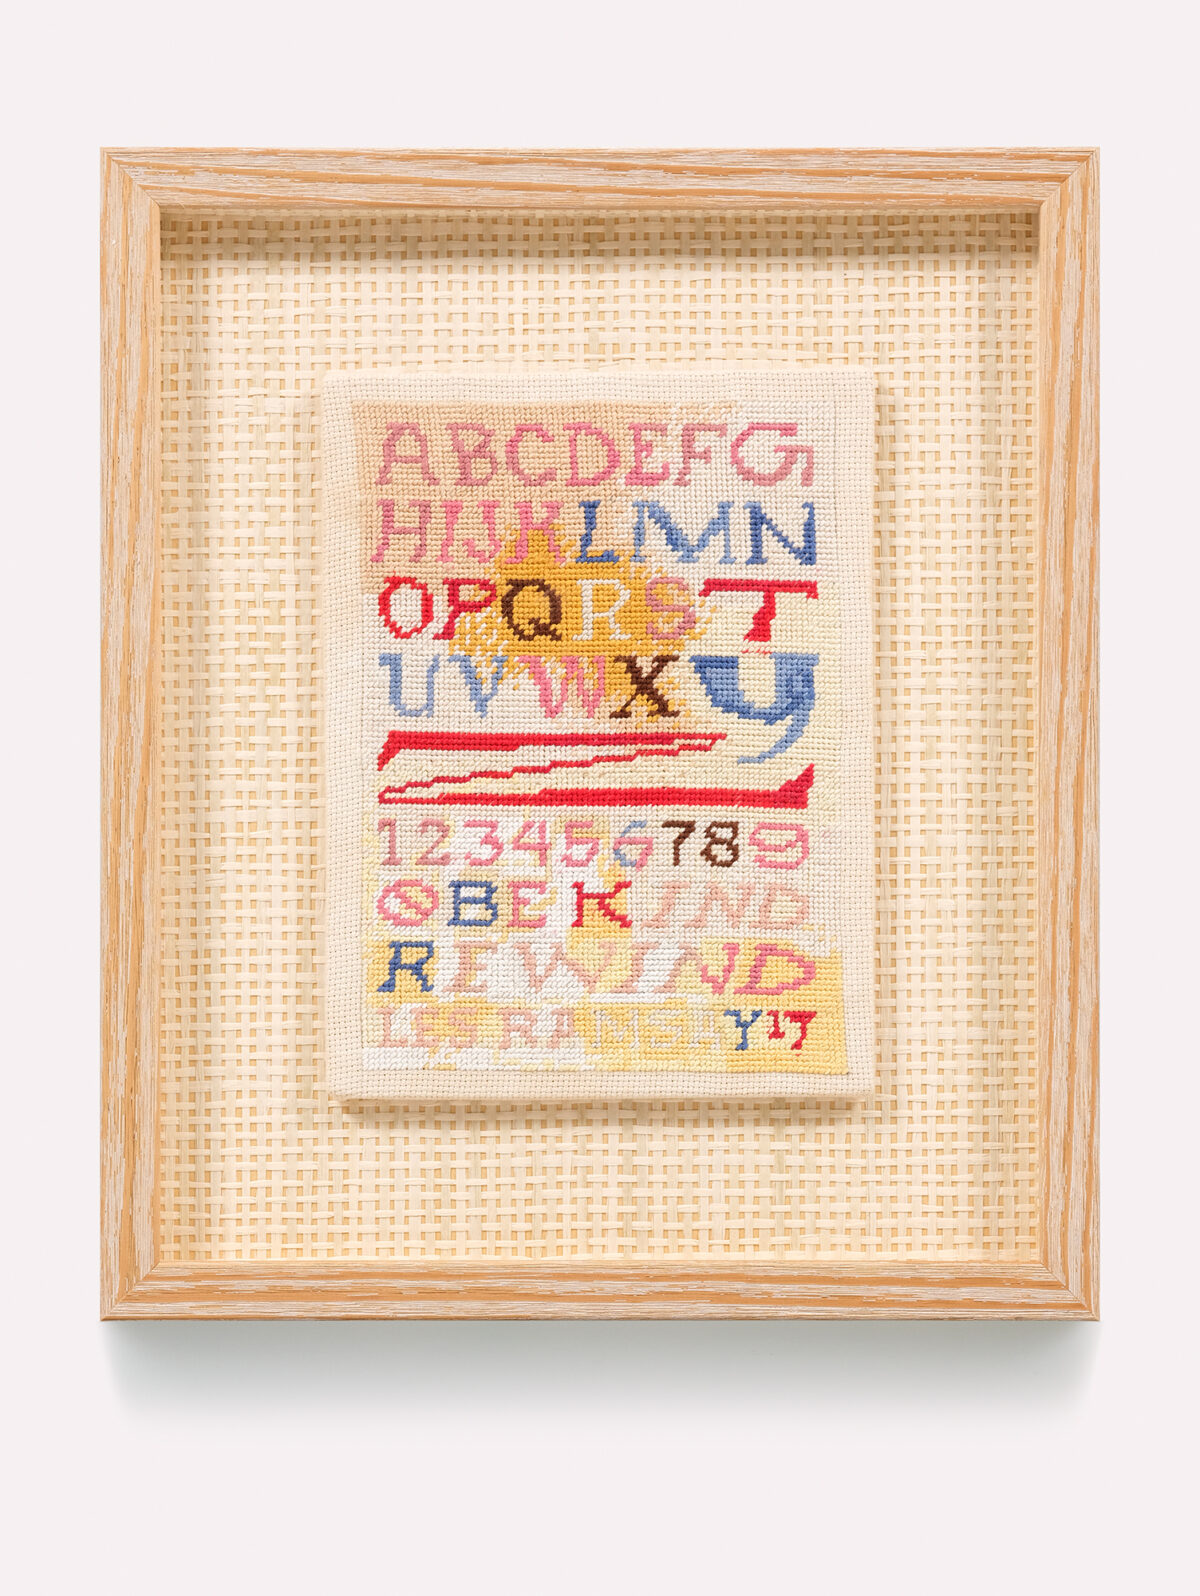 ABCDEFG
HIJKLMN
OPQRST
UVWXy
Z
123456789
0 BE KIND
REWIND
LES RAMSAY '17